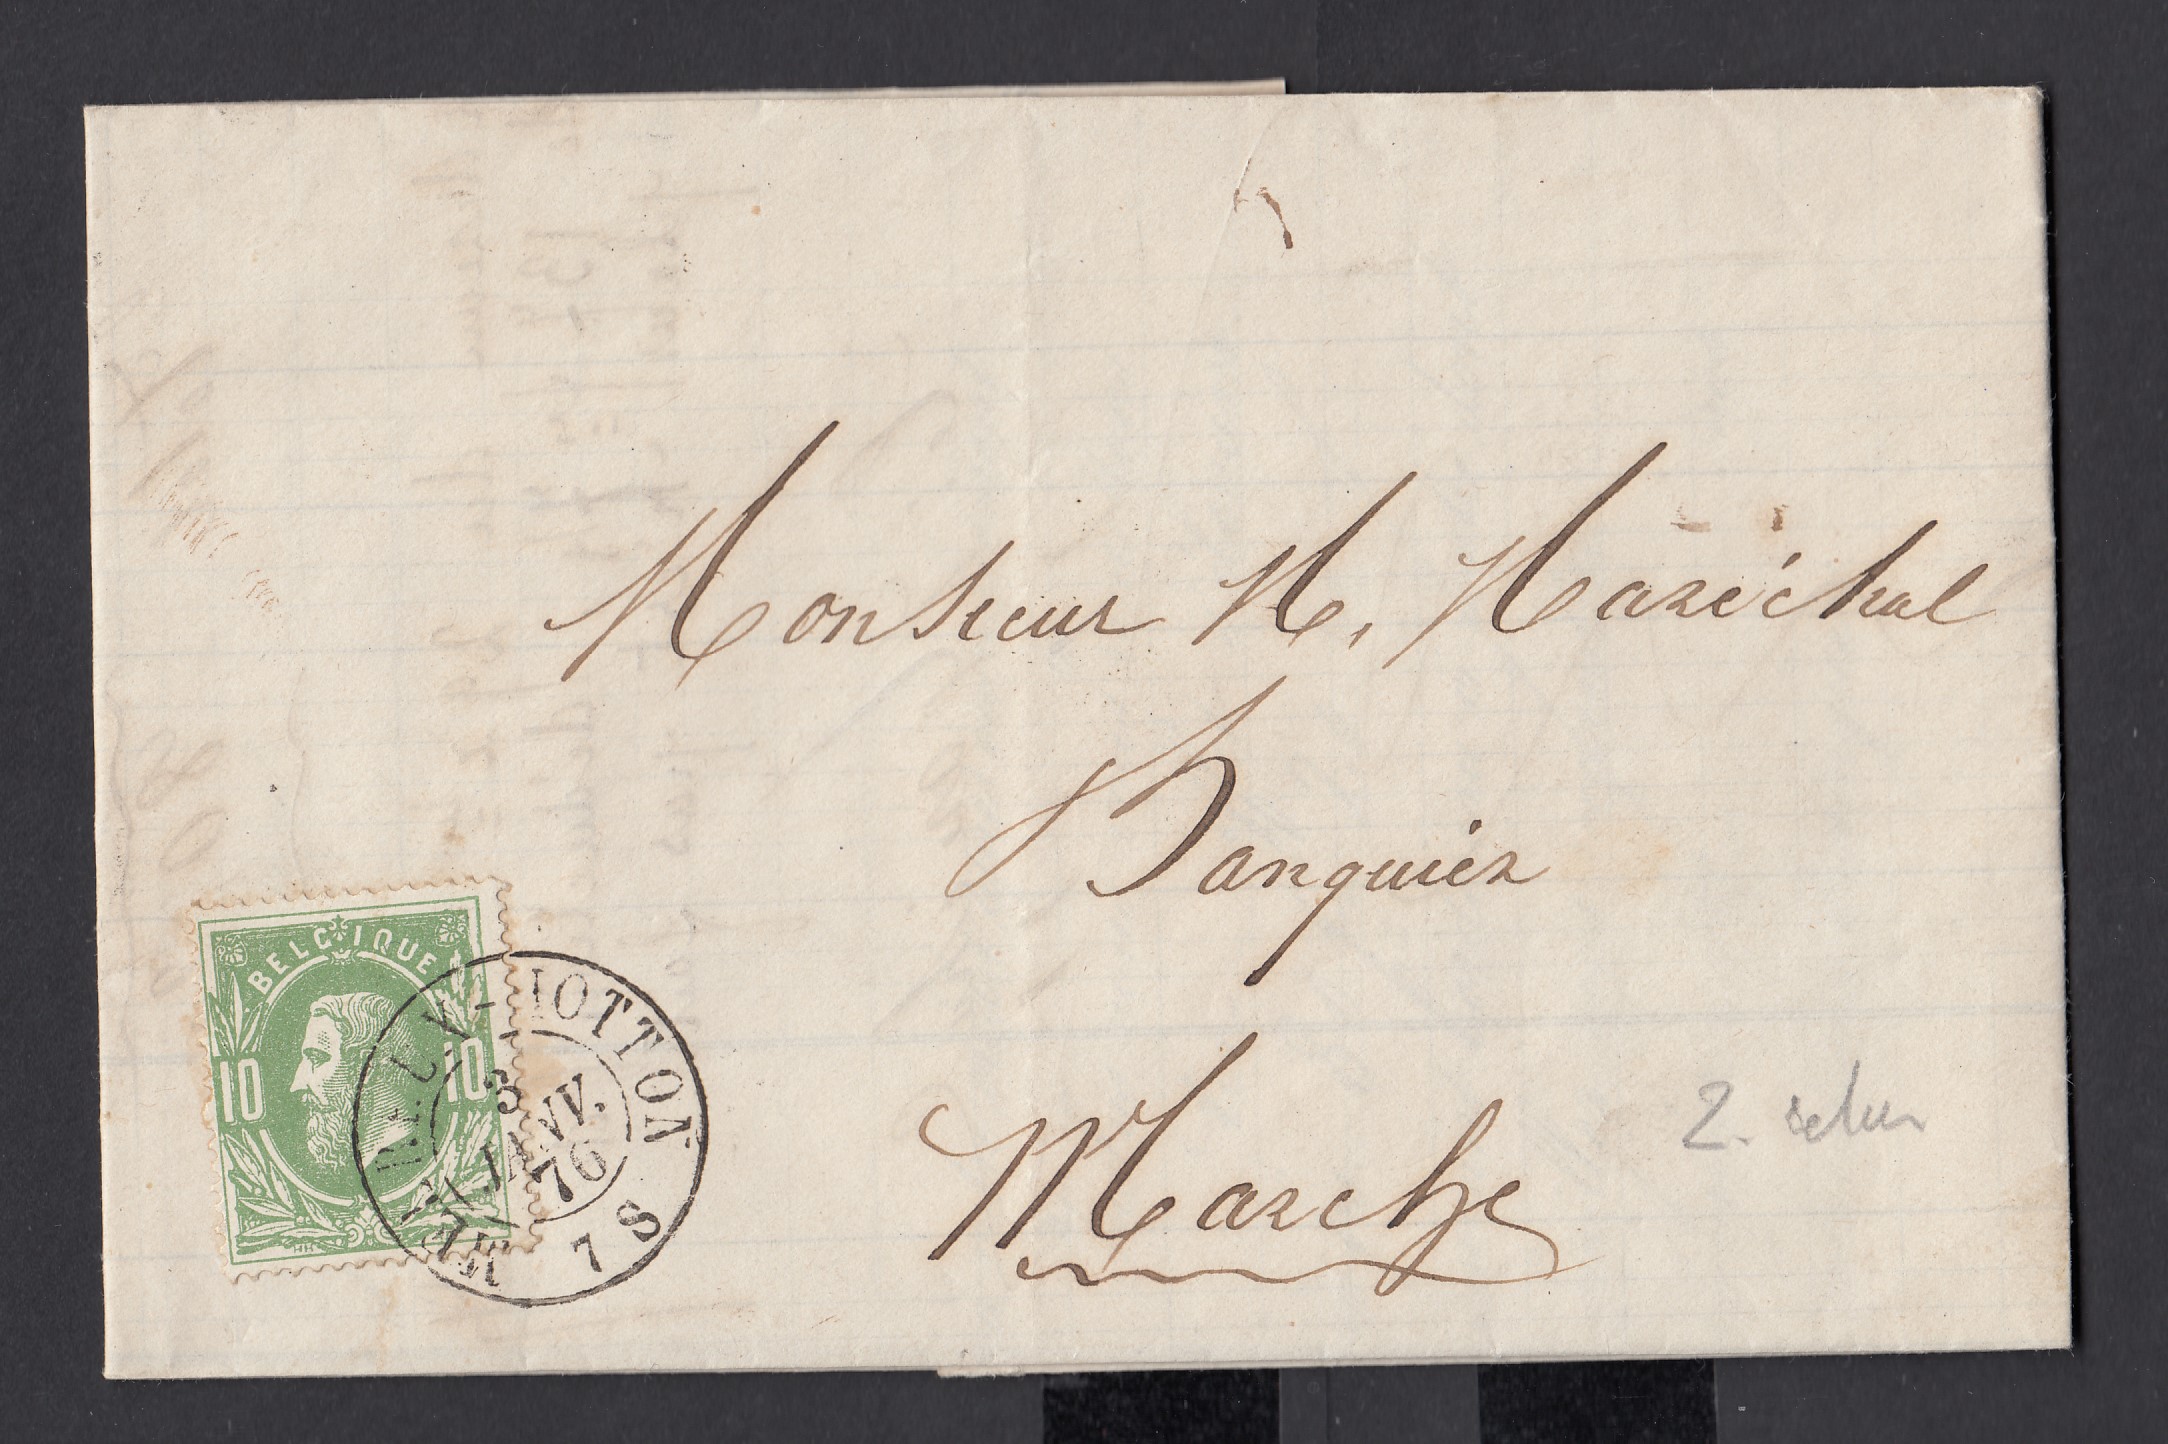 Monsieur H. Maréchal
Banquier
Marche
BELGIQUE
10 10
MELREUX-HOTTON
3
JANV.
76
7 S
2.